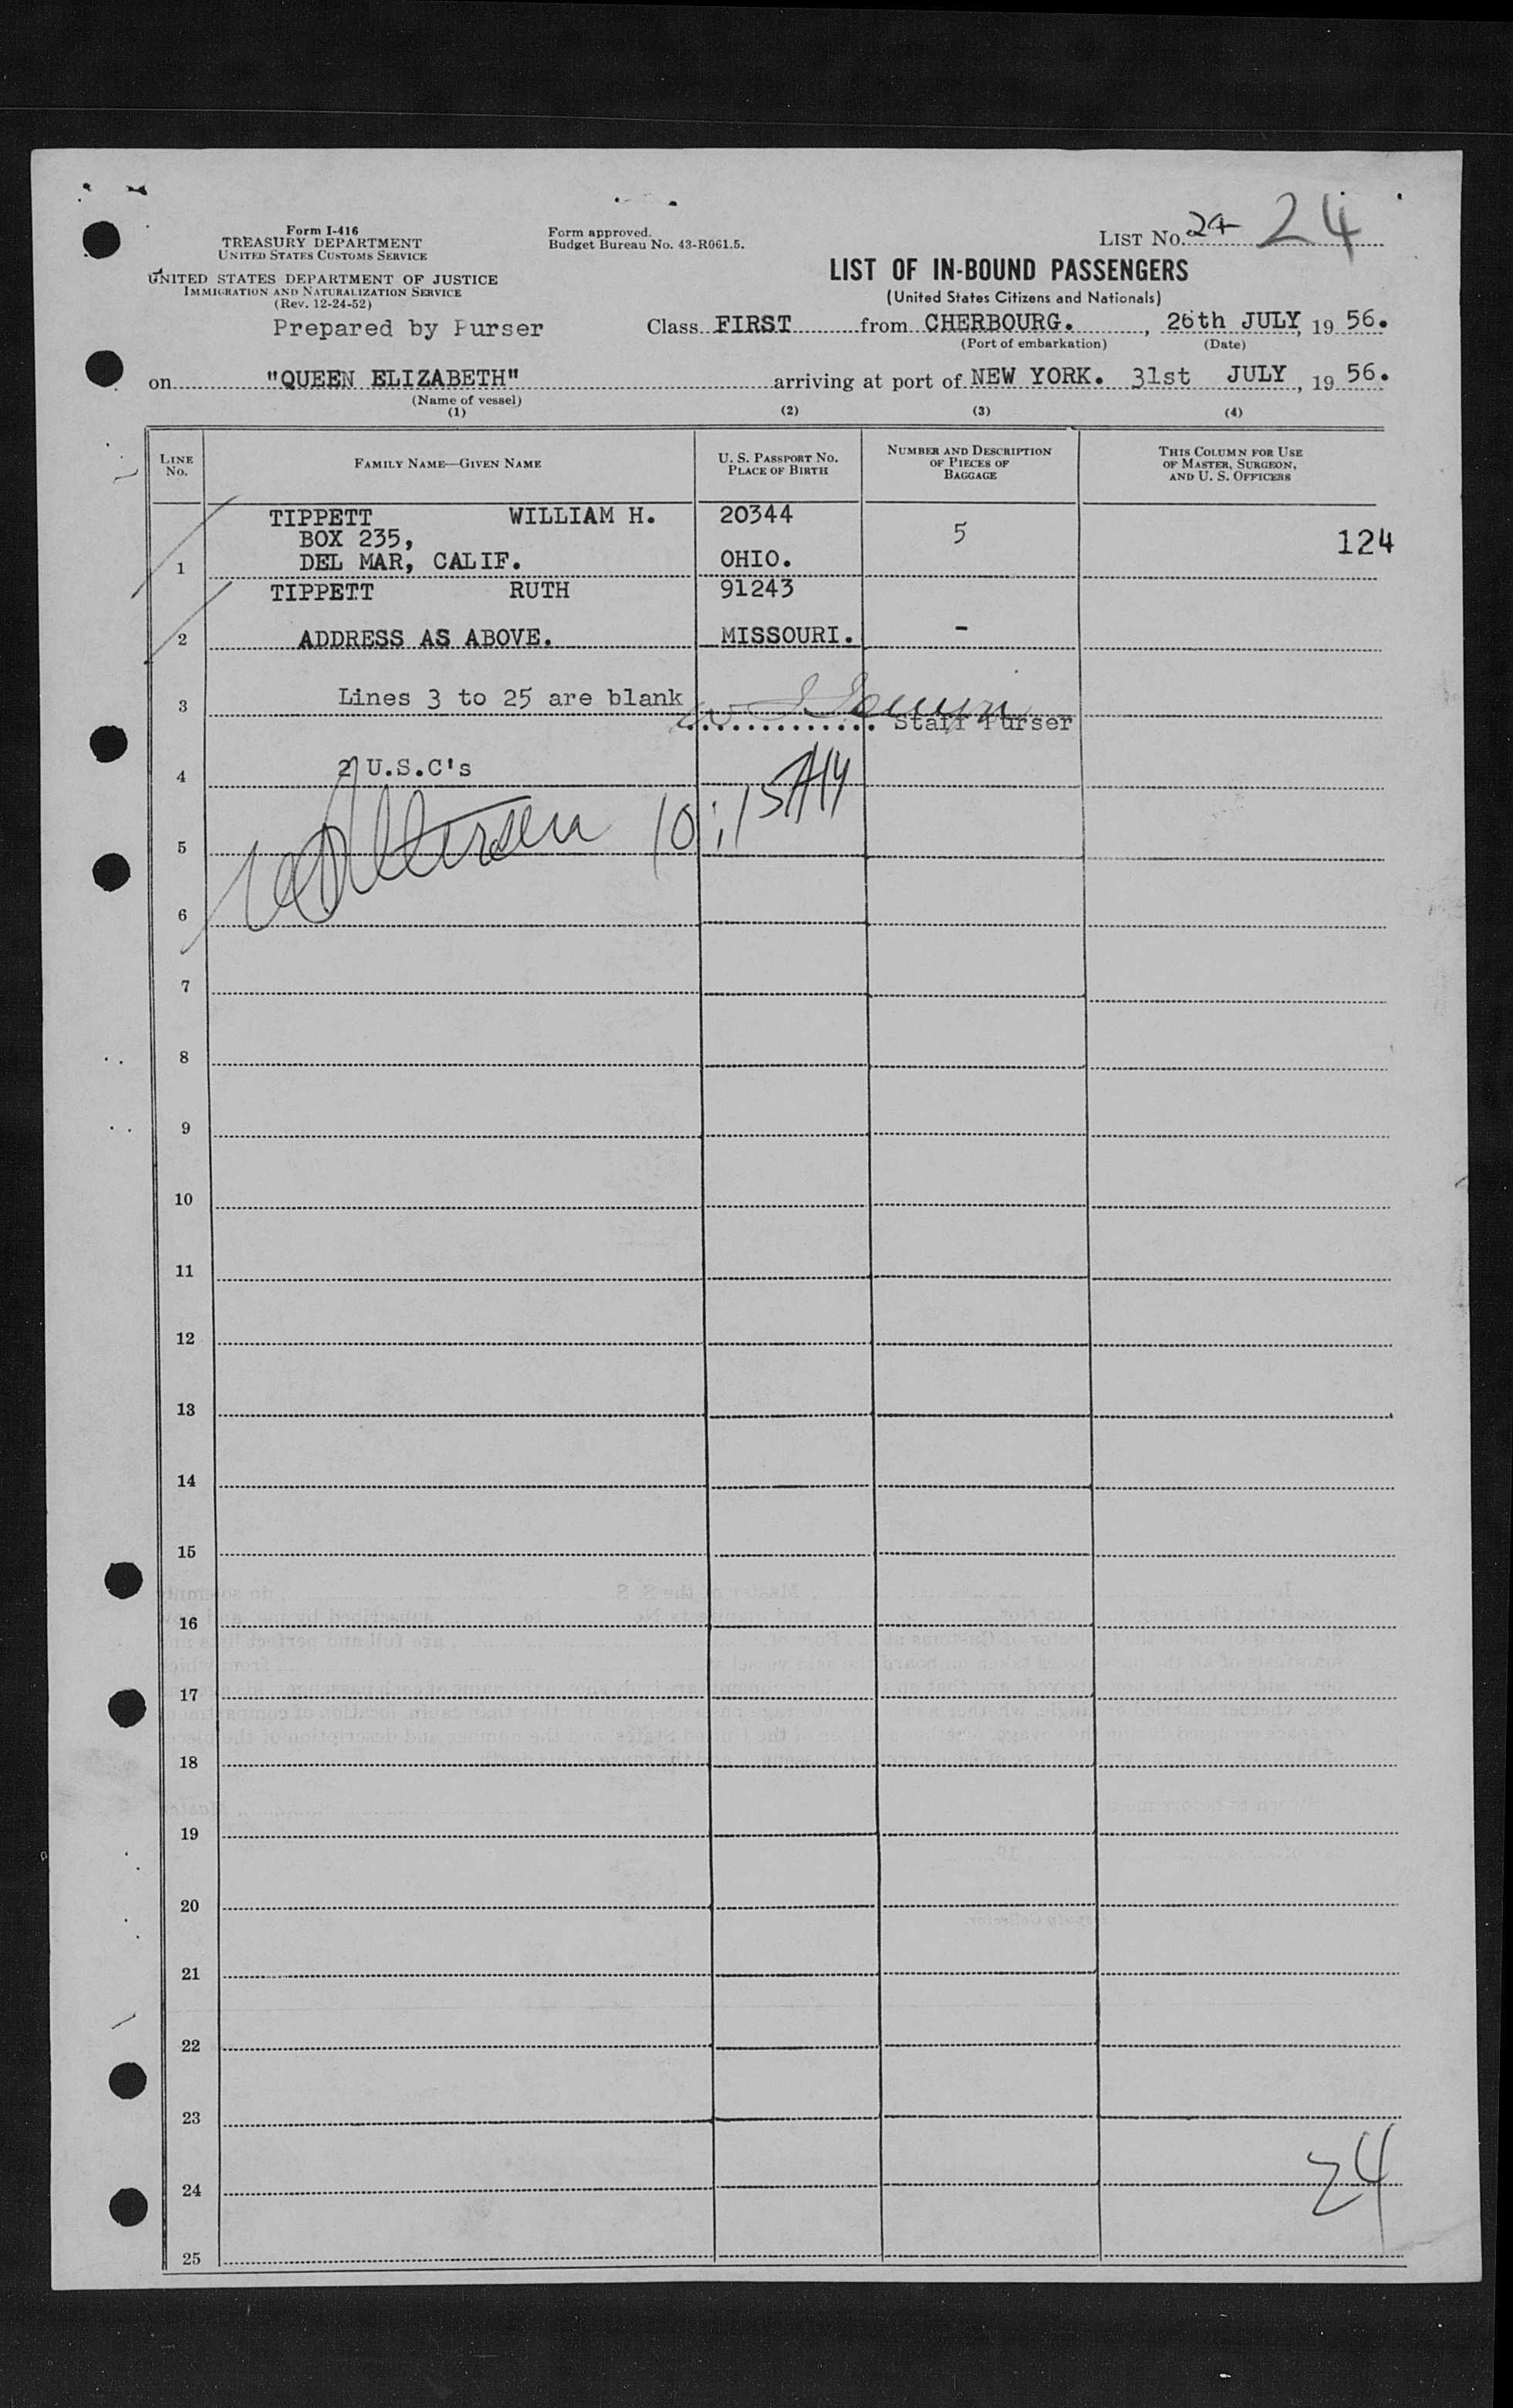 Form I-416
TREASURY DEPARTMENT
UNITED STATES CUSTOMS SERVICE
UNITED STATES DEPARTMENT OF JUSTICE
IMMIGRATION AND NATURALIZATION SERVICE
(Rev. 12-24-52)
Form approved.
Budget Bureau No. 43-R061.5.
LIST NO. 24 24
LIST OF IN-BOUND PASSENGERS
(United States Citizens and Nationals)
Prepared by Purser
Class FIRST from CHERBOURG. , 26th JULY, 19 56.
(Port of embarkation) (Date)
on "QUEEN ELIZABETH" arriving at port of NEW YORK. 31st JULY, 19 56.
(Name of vessel)
(1) (2) (3) (4)
LINE No. FAMILY NAME—GIVEN NAME U. S. PASSPORT NO. PLACE OF BIRTH NUMBER AND DESCRIPTION OF PIECES OF BAGGAGE THIS COLUMN FOR USE OF MASTER, SURGEON, AND U. S. OFFICERS
TIPPETT WILLIAM H. 20344
BOX 235, 5 124
1 DEL MAR, CALIF. OHIO.
TIPPETT RUTH 91243
2 ADDRESS AS ABOVE. MISSOURI. -
3 Lines 3 to 25 are blank
Staff Purser
4 2 U.S.C's
5 10:15 AM
6
7
8
9
10
11
12
13
14
15
16
17
18
19
20
21
22
23
24 24
25